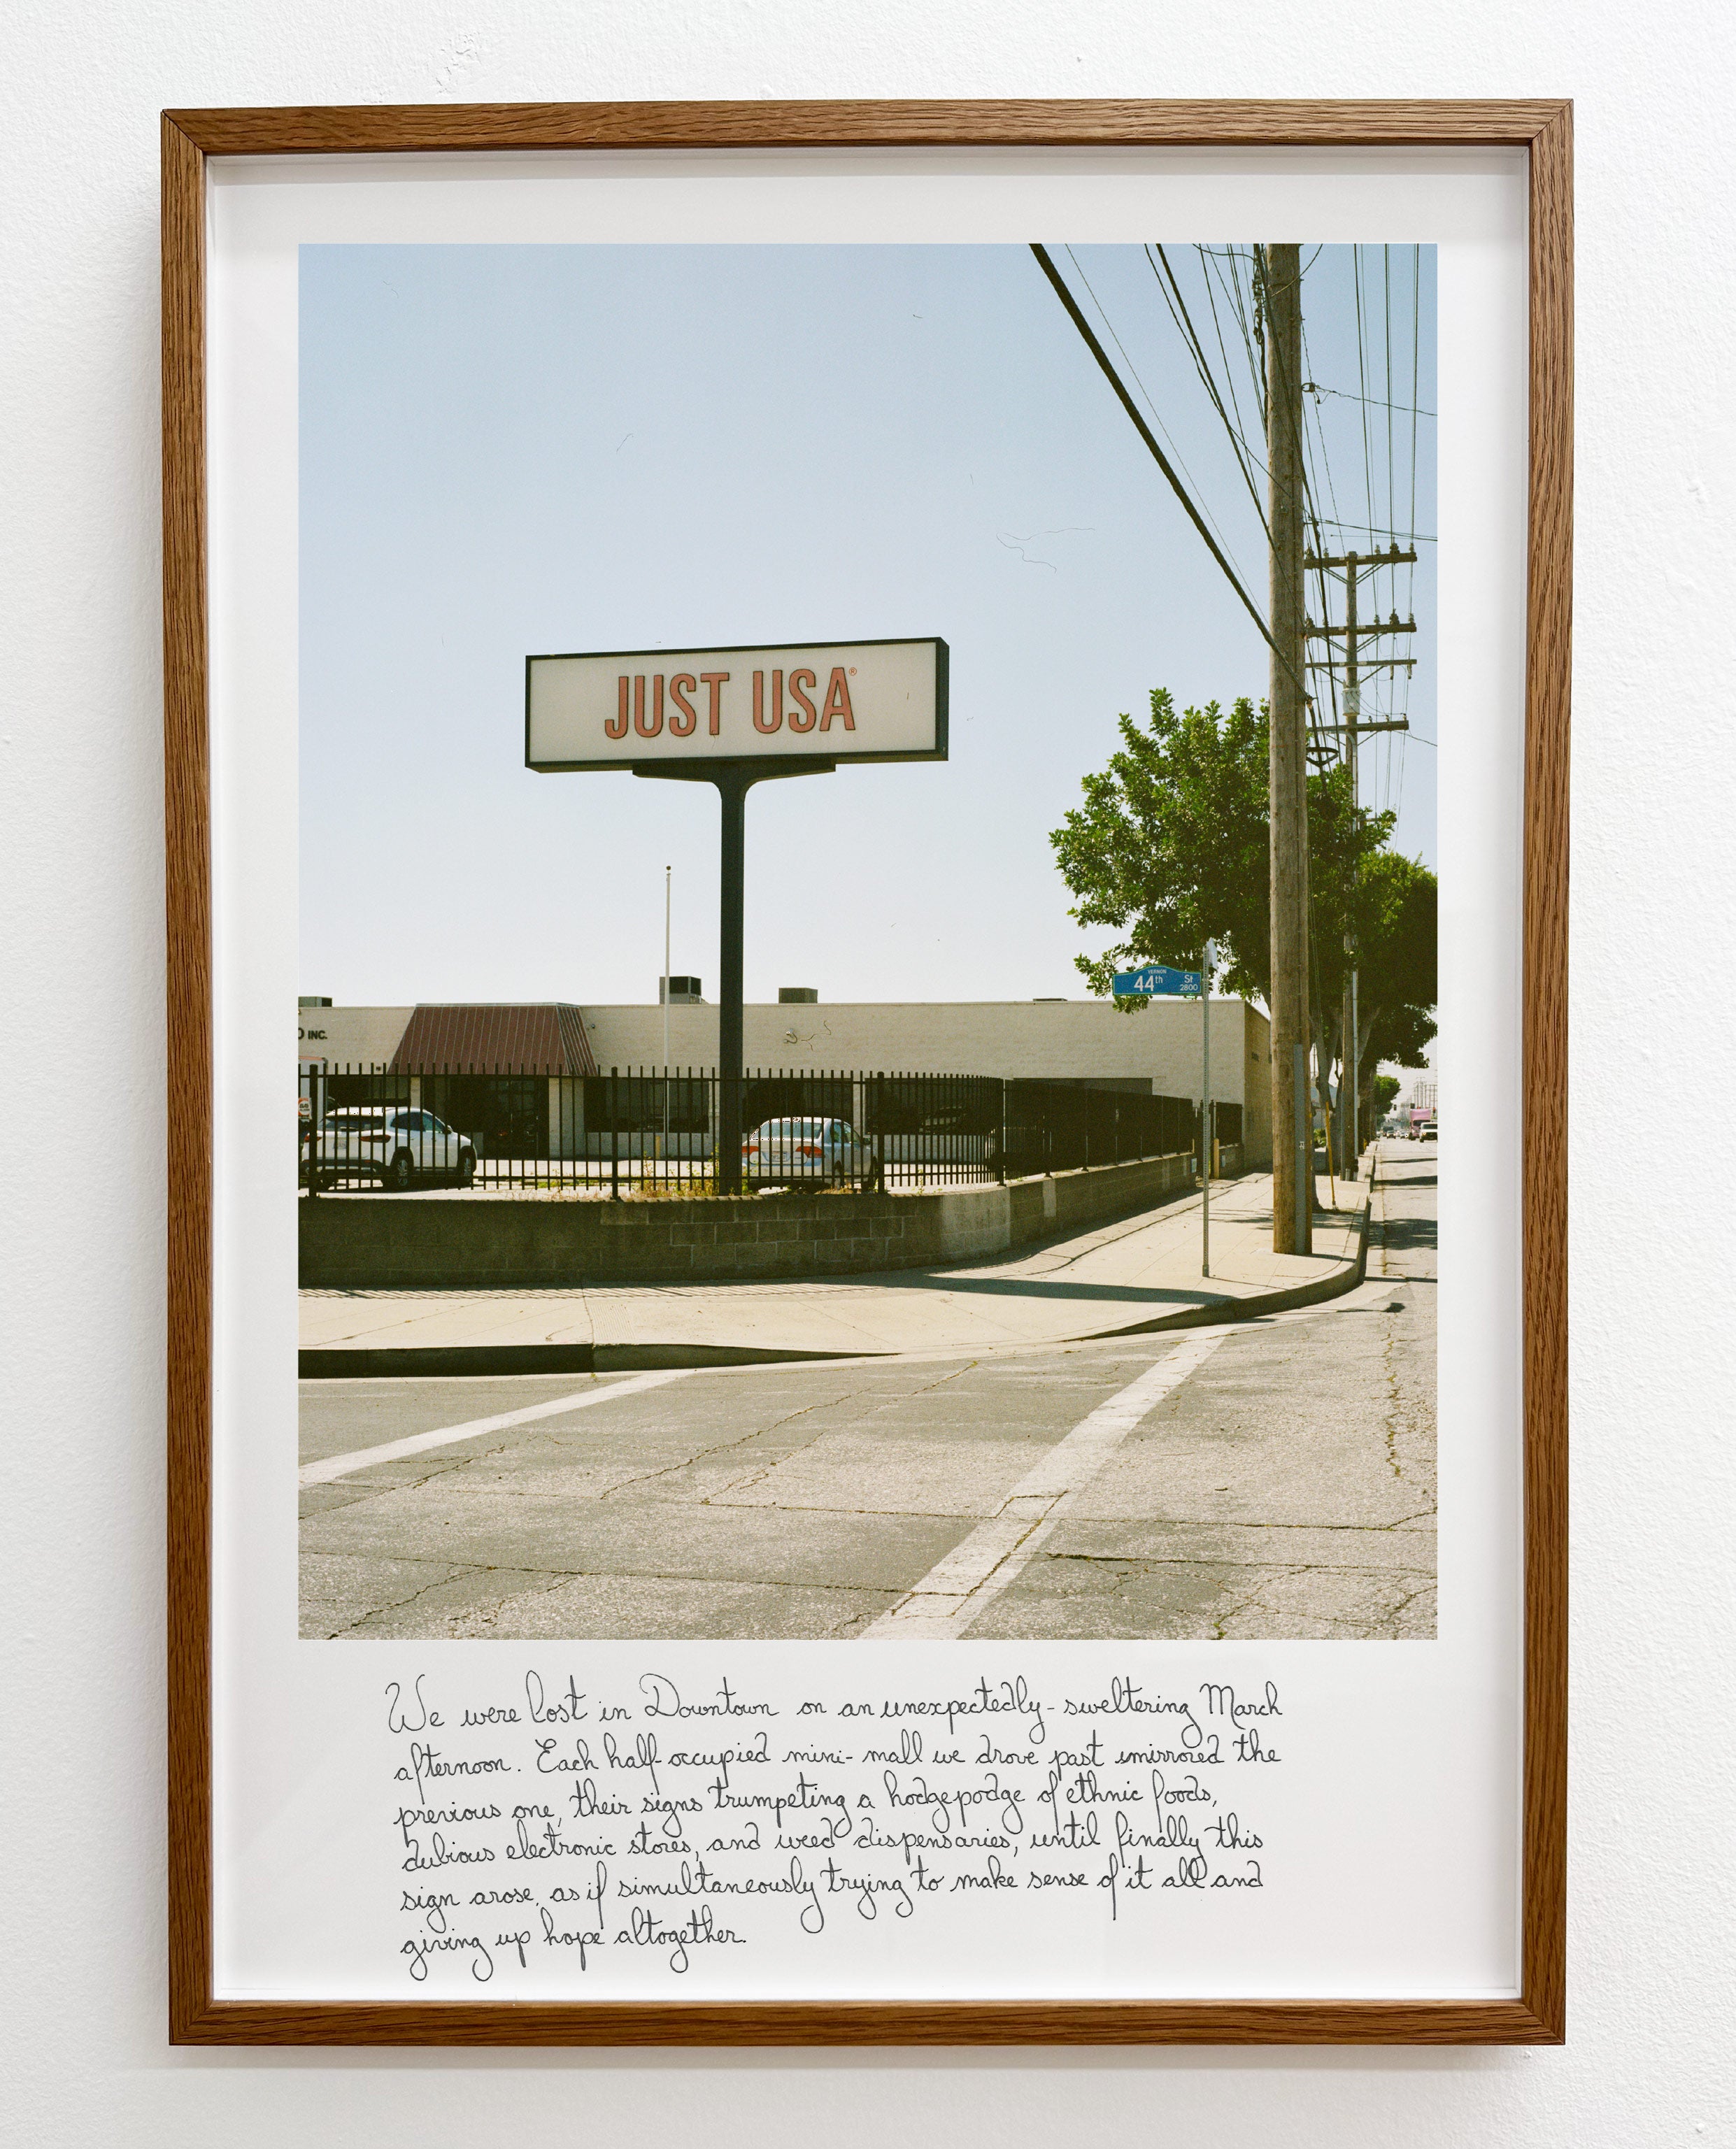 JUST USA®
VERNON
44th St
2800
INC.
We were lost in Downtown on an unexpectedly-sweltering March
afternoon. Each half-occupied mini-mall we drove past mirrored the
previous one, their signs trumpeting a hodgepodge of ethnic foods,
dubious electronic stores, and weed dispensaries, until finally this
sign arose, as if simultaneously trying to make sense of it all and
giving up hope altogether.